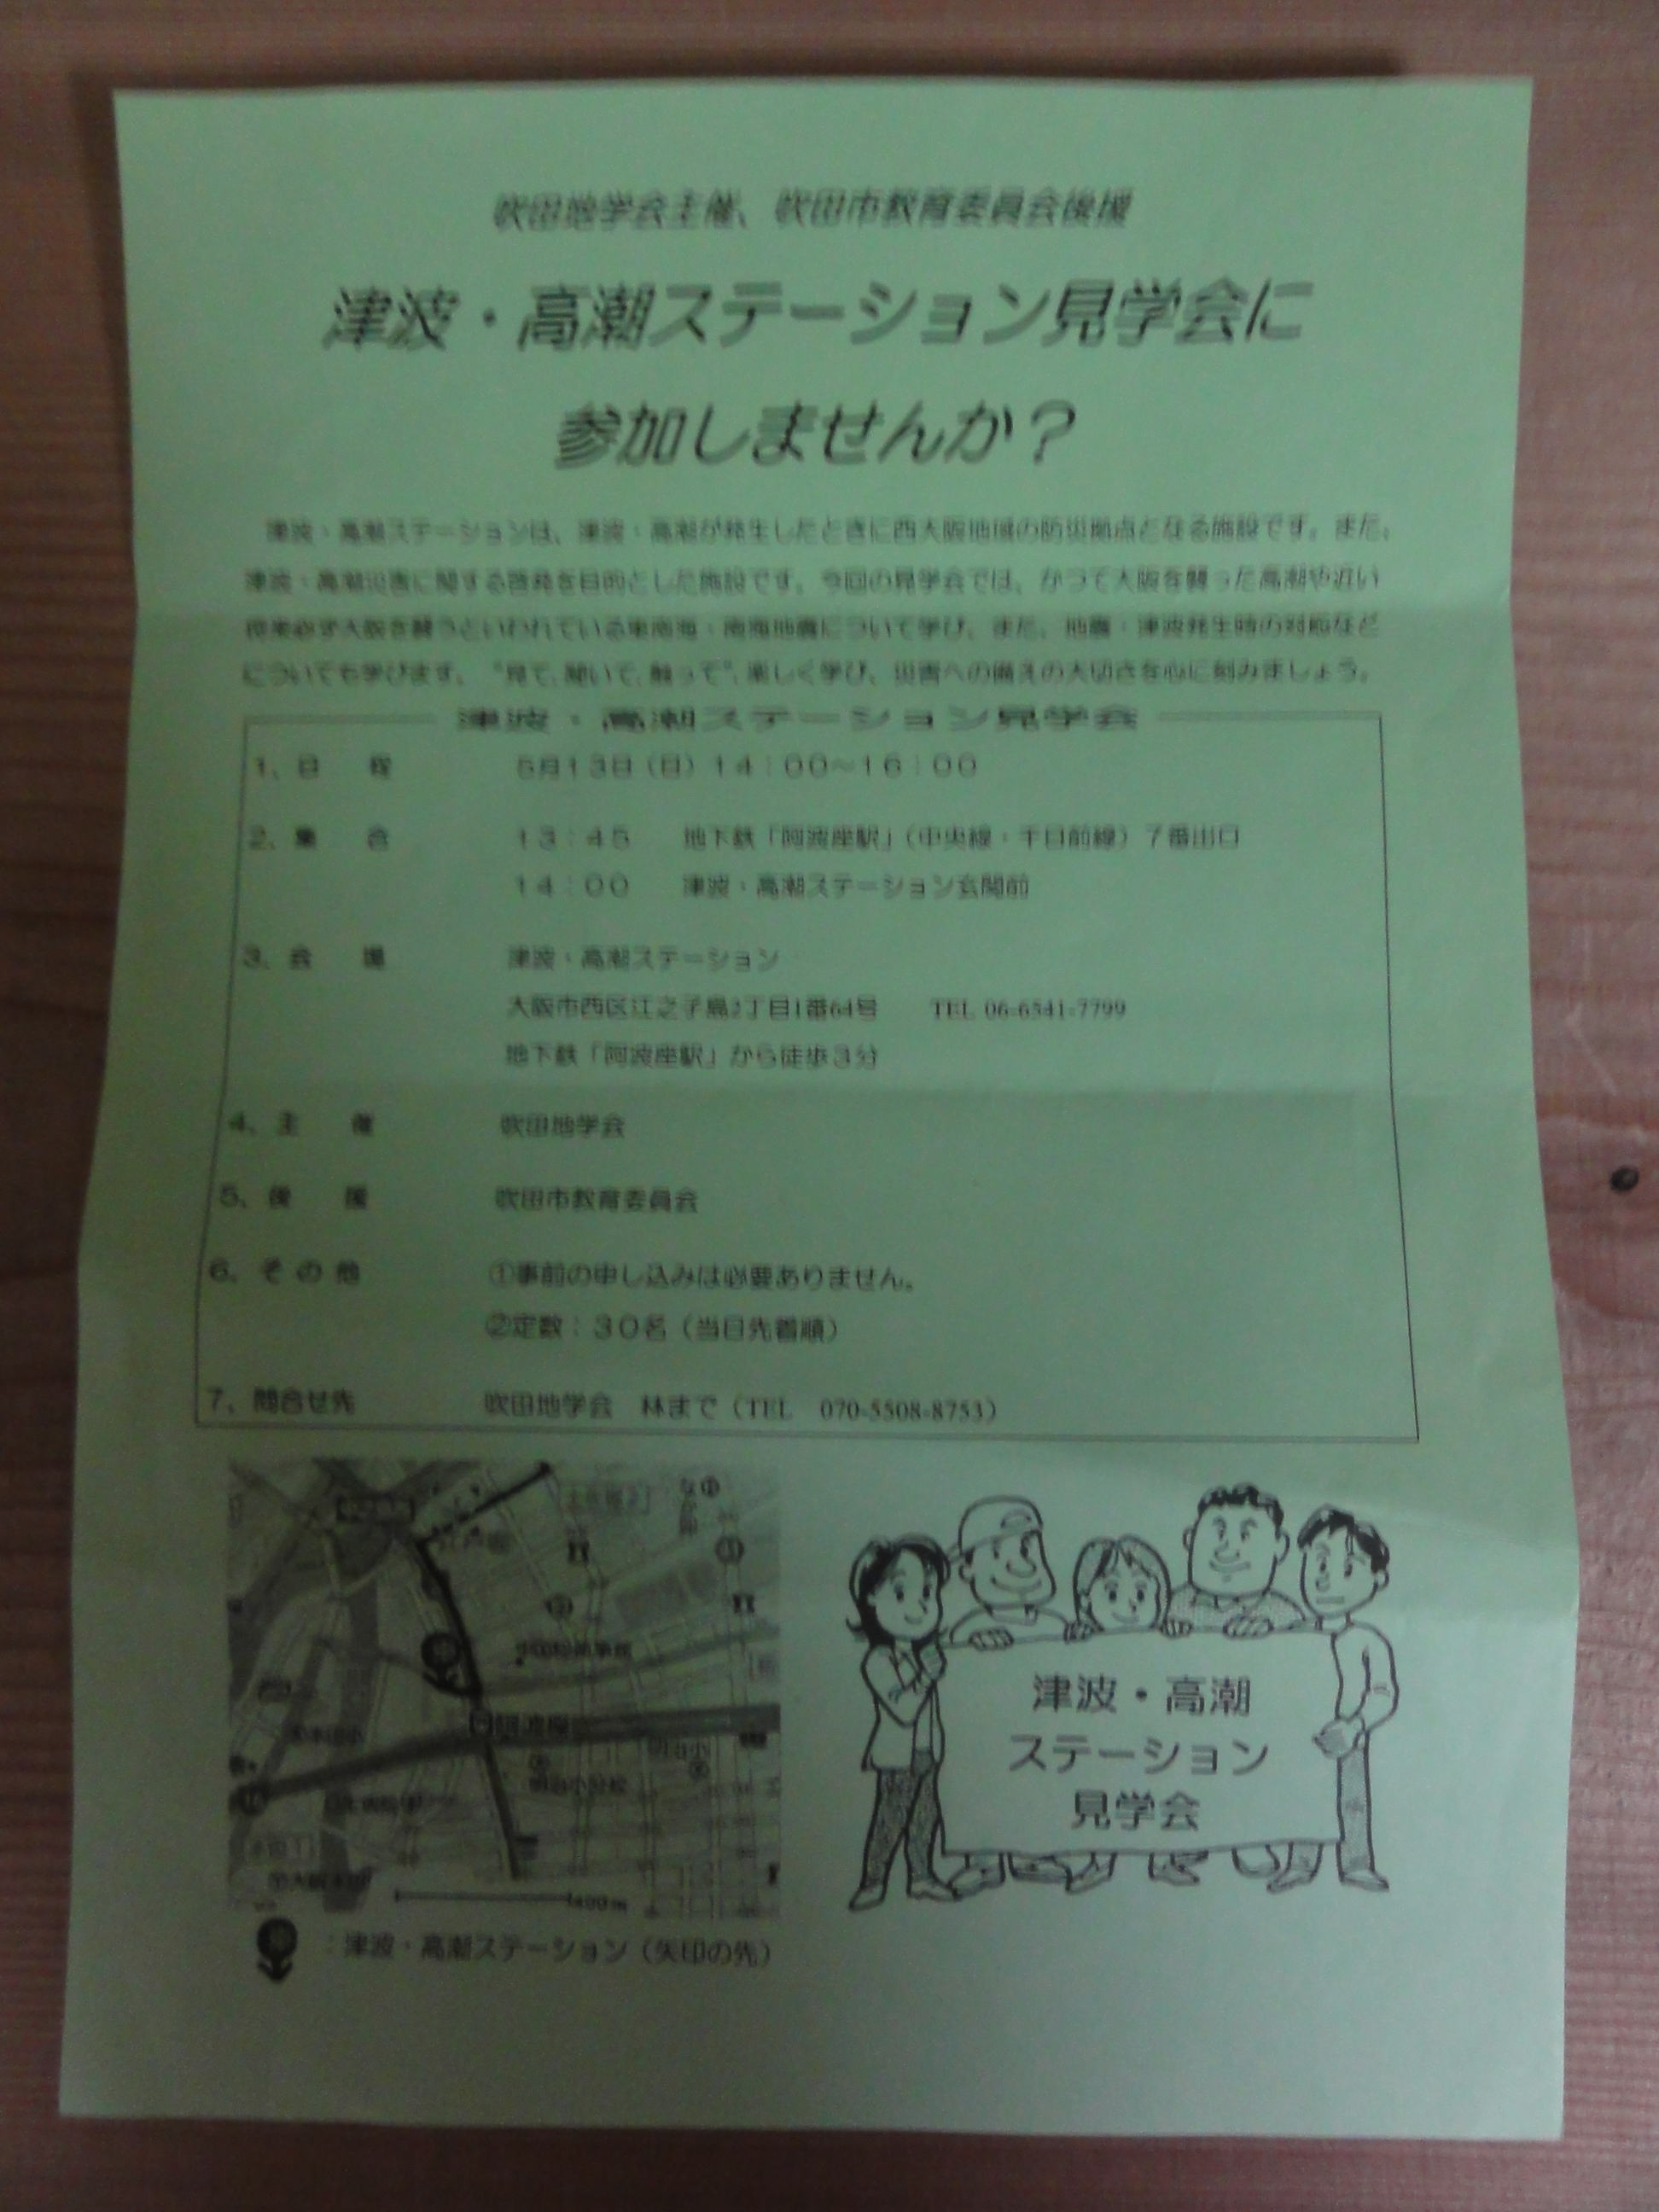 吹田地学会主催、吹田市教育委員会後援
津波・高潮ステーション見学会に
参加しませんか？
津波・高潮ステーションは、津波・高潮が発生したときに西大阪地域の防災拠点となる施設です。また、
津波・高潮災害に関する啓発を目的とした施設です。今回の見学会では、かつて大阪を襲った高潮や近い
将来必ず大阪を襲うといわれている東南海・南海地震について学び、また、地震・津波発生時の対応など
についても学びます。 "見て、聞いて、触って"、楽しく学び、災害への備えの大切さを心に刻みましょう。
津波・高潮ステーション見学会
1、日 程 5月13日（日）14：00～16：00
2、集 合 13：45 地下鉄「阿波座駅」（中央線・千日前線）7番出口
14：00 津波・高潮ステーション玄関前
3、会 場 津波・高潮ステーション
大阪市西区江之子島2丁目1番64号 TEL 06-6541-7799
地下鉄「阿波座駅」から徒歩3分
4、主 催 吹田地学会
5、後 援 吹田市教育委員会
6、その他 ①事前の申し込みは必要ありません。
②定数：30名（当日先着順）
7、問合せ先 吹田地学会 林まで（TEL 070-5508-8753）
阿波座
明治小
400m
：津波・高潮ステーション（矢印の先）
津波・高潮
ステーション
見学会